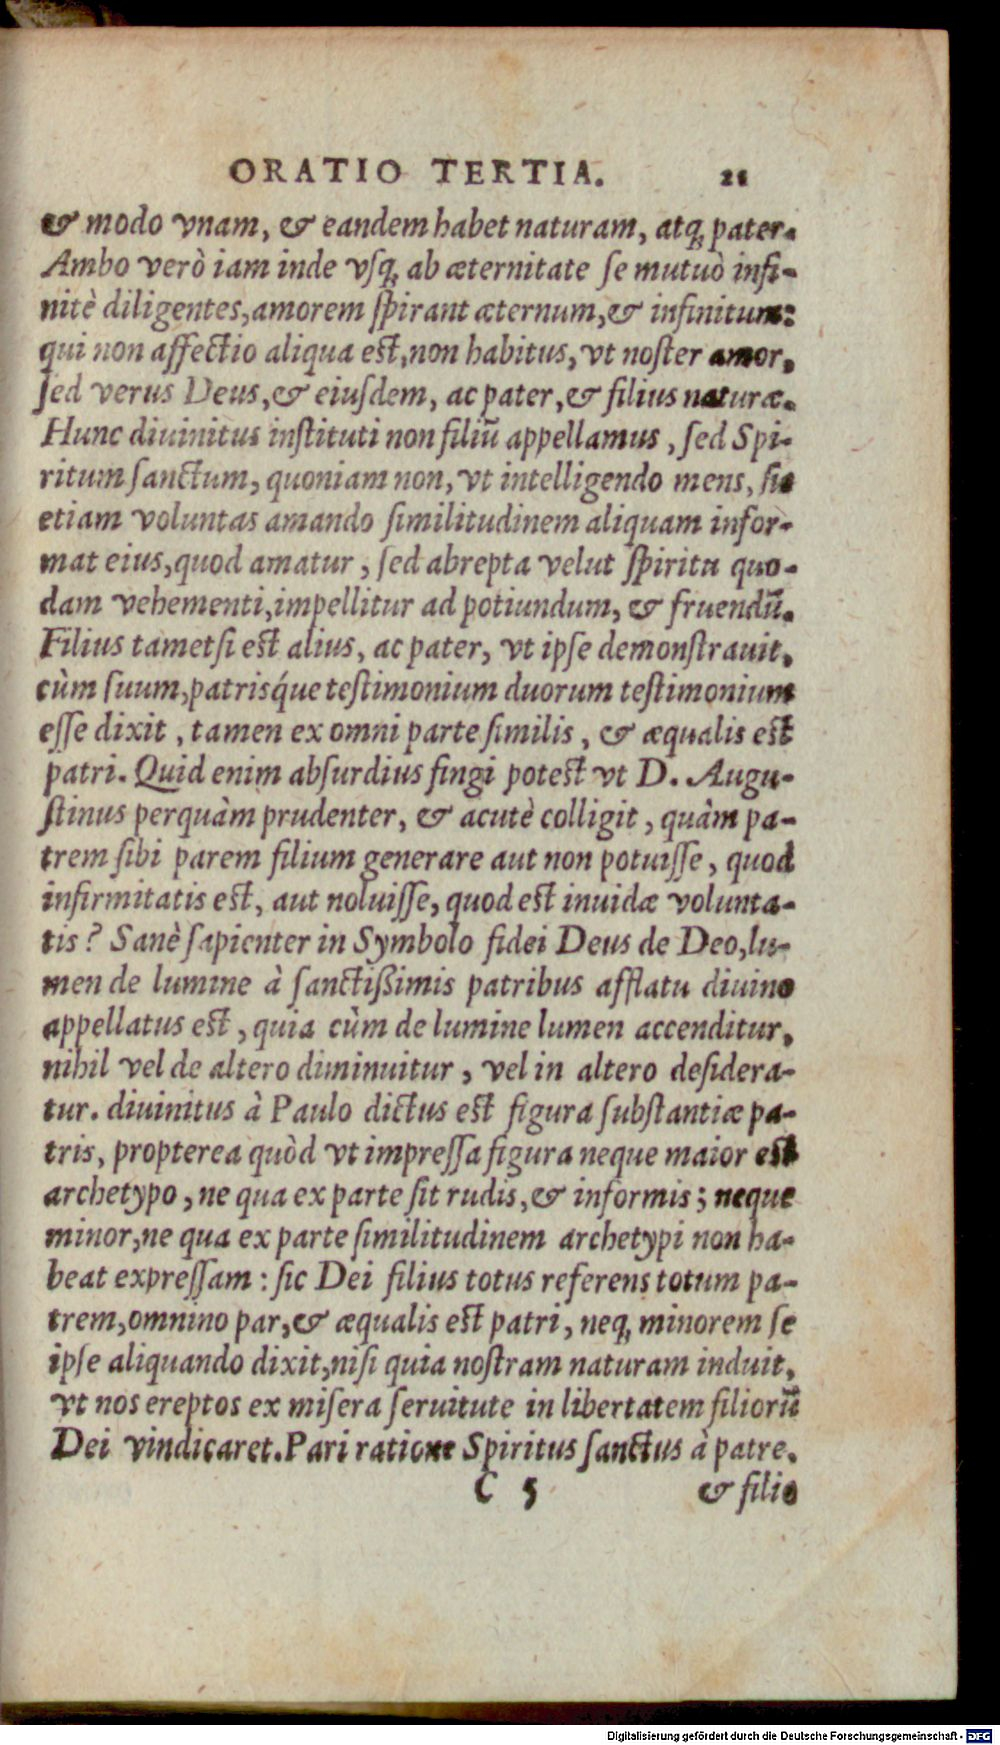 ORATIO TERTIA. 21
& modo vnam, & eandem habet naturam, atq; pater.
Ambo verò iam inde vsq; ab æternitate se mutuò infi-
nitè diligentes, amorem spirant æternum, & infinitum:
qui non affectio aliqua est, non habitus, vt noster amor,
sed verus Deus, & eiusdem, ac pater, & filius naturæ.
Hunc diuinitus instituti non filiū appellamus, sed Spi-
ritum sanctum, quoniam non, vt intelligendo mens, sic
etiam voluntas amando similitudinem aliquam infor-
mat eius, quod amatur, sed abrepta velut spiritu quo-
dam vehementi, impellitur ad potiundum, & fruendū.
Filius tametsi est alius, ac pater, vt ipse demonstrauit,
cùm suum, patrisq́ue testimonium duorum testimonium
esse dixit, tamen ex omni parte similis, & æqualis est
patri. Quid enim absurdius fingi potest vt D. Augu-
stinus perquàm prudenter, & acutè colligit, quàm pa-
trem sibi parem filium generare aut non potuisse, quod
infirmitatis est, aut noluisse, quod est inuidæ volunta-
tis? Sanè sapienter in Symbolo fidei Deus de Deo, lu-
men de lumine à sanctißimis patribus afflatu diuino
appellatus est, quia cùm de lumine lumen accenditur,
nihil vel de altero diminuitur, vel in altero desidera-
tur. diuinitus à Paulo dictus est figura substantiæ pa-
tris, propterea quòd vt impressa figura neque maior est
archetypo, ne qua ex parte sit rudis, & informis; neque
minor, ne qua ex parte similitudinem archetypi non ha-
beat expressam: sic Dei filius totus referens totum pa-
trem, omnino par, & æqualis est patri, neq; minorem se
ipse aliquando dixit, nisi quia nostram naturam induit,
vt nos ereptos ex misera seruitute in libertatem filiorū
Dei vindicaret. Pari ratione Spiritus sanctus à patre,
C 5 & filio
Digitalisierung gefördert durch die Deutsche Forschungsgemeinschaft - DFG